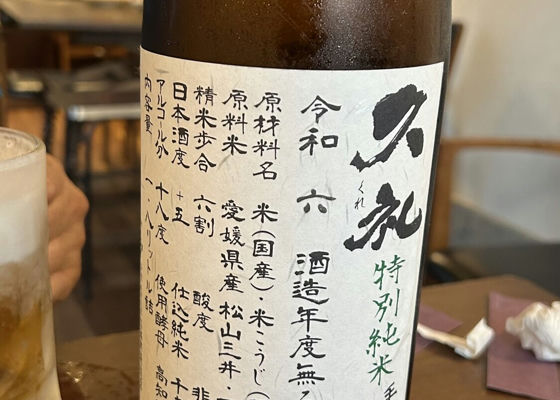 久礼
くれ
特別純米
令和 六 酒造年度無
原材料名 米(国産)・米こうじ(
原料米 愛媛県産 松山三井・
精米歩合 六割 酸度 非
日本酒度 +五 仕込純米 千
アルコール分 十八度 使用酵母 高知
内容量 一・八リットル詰